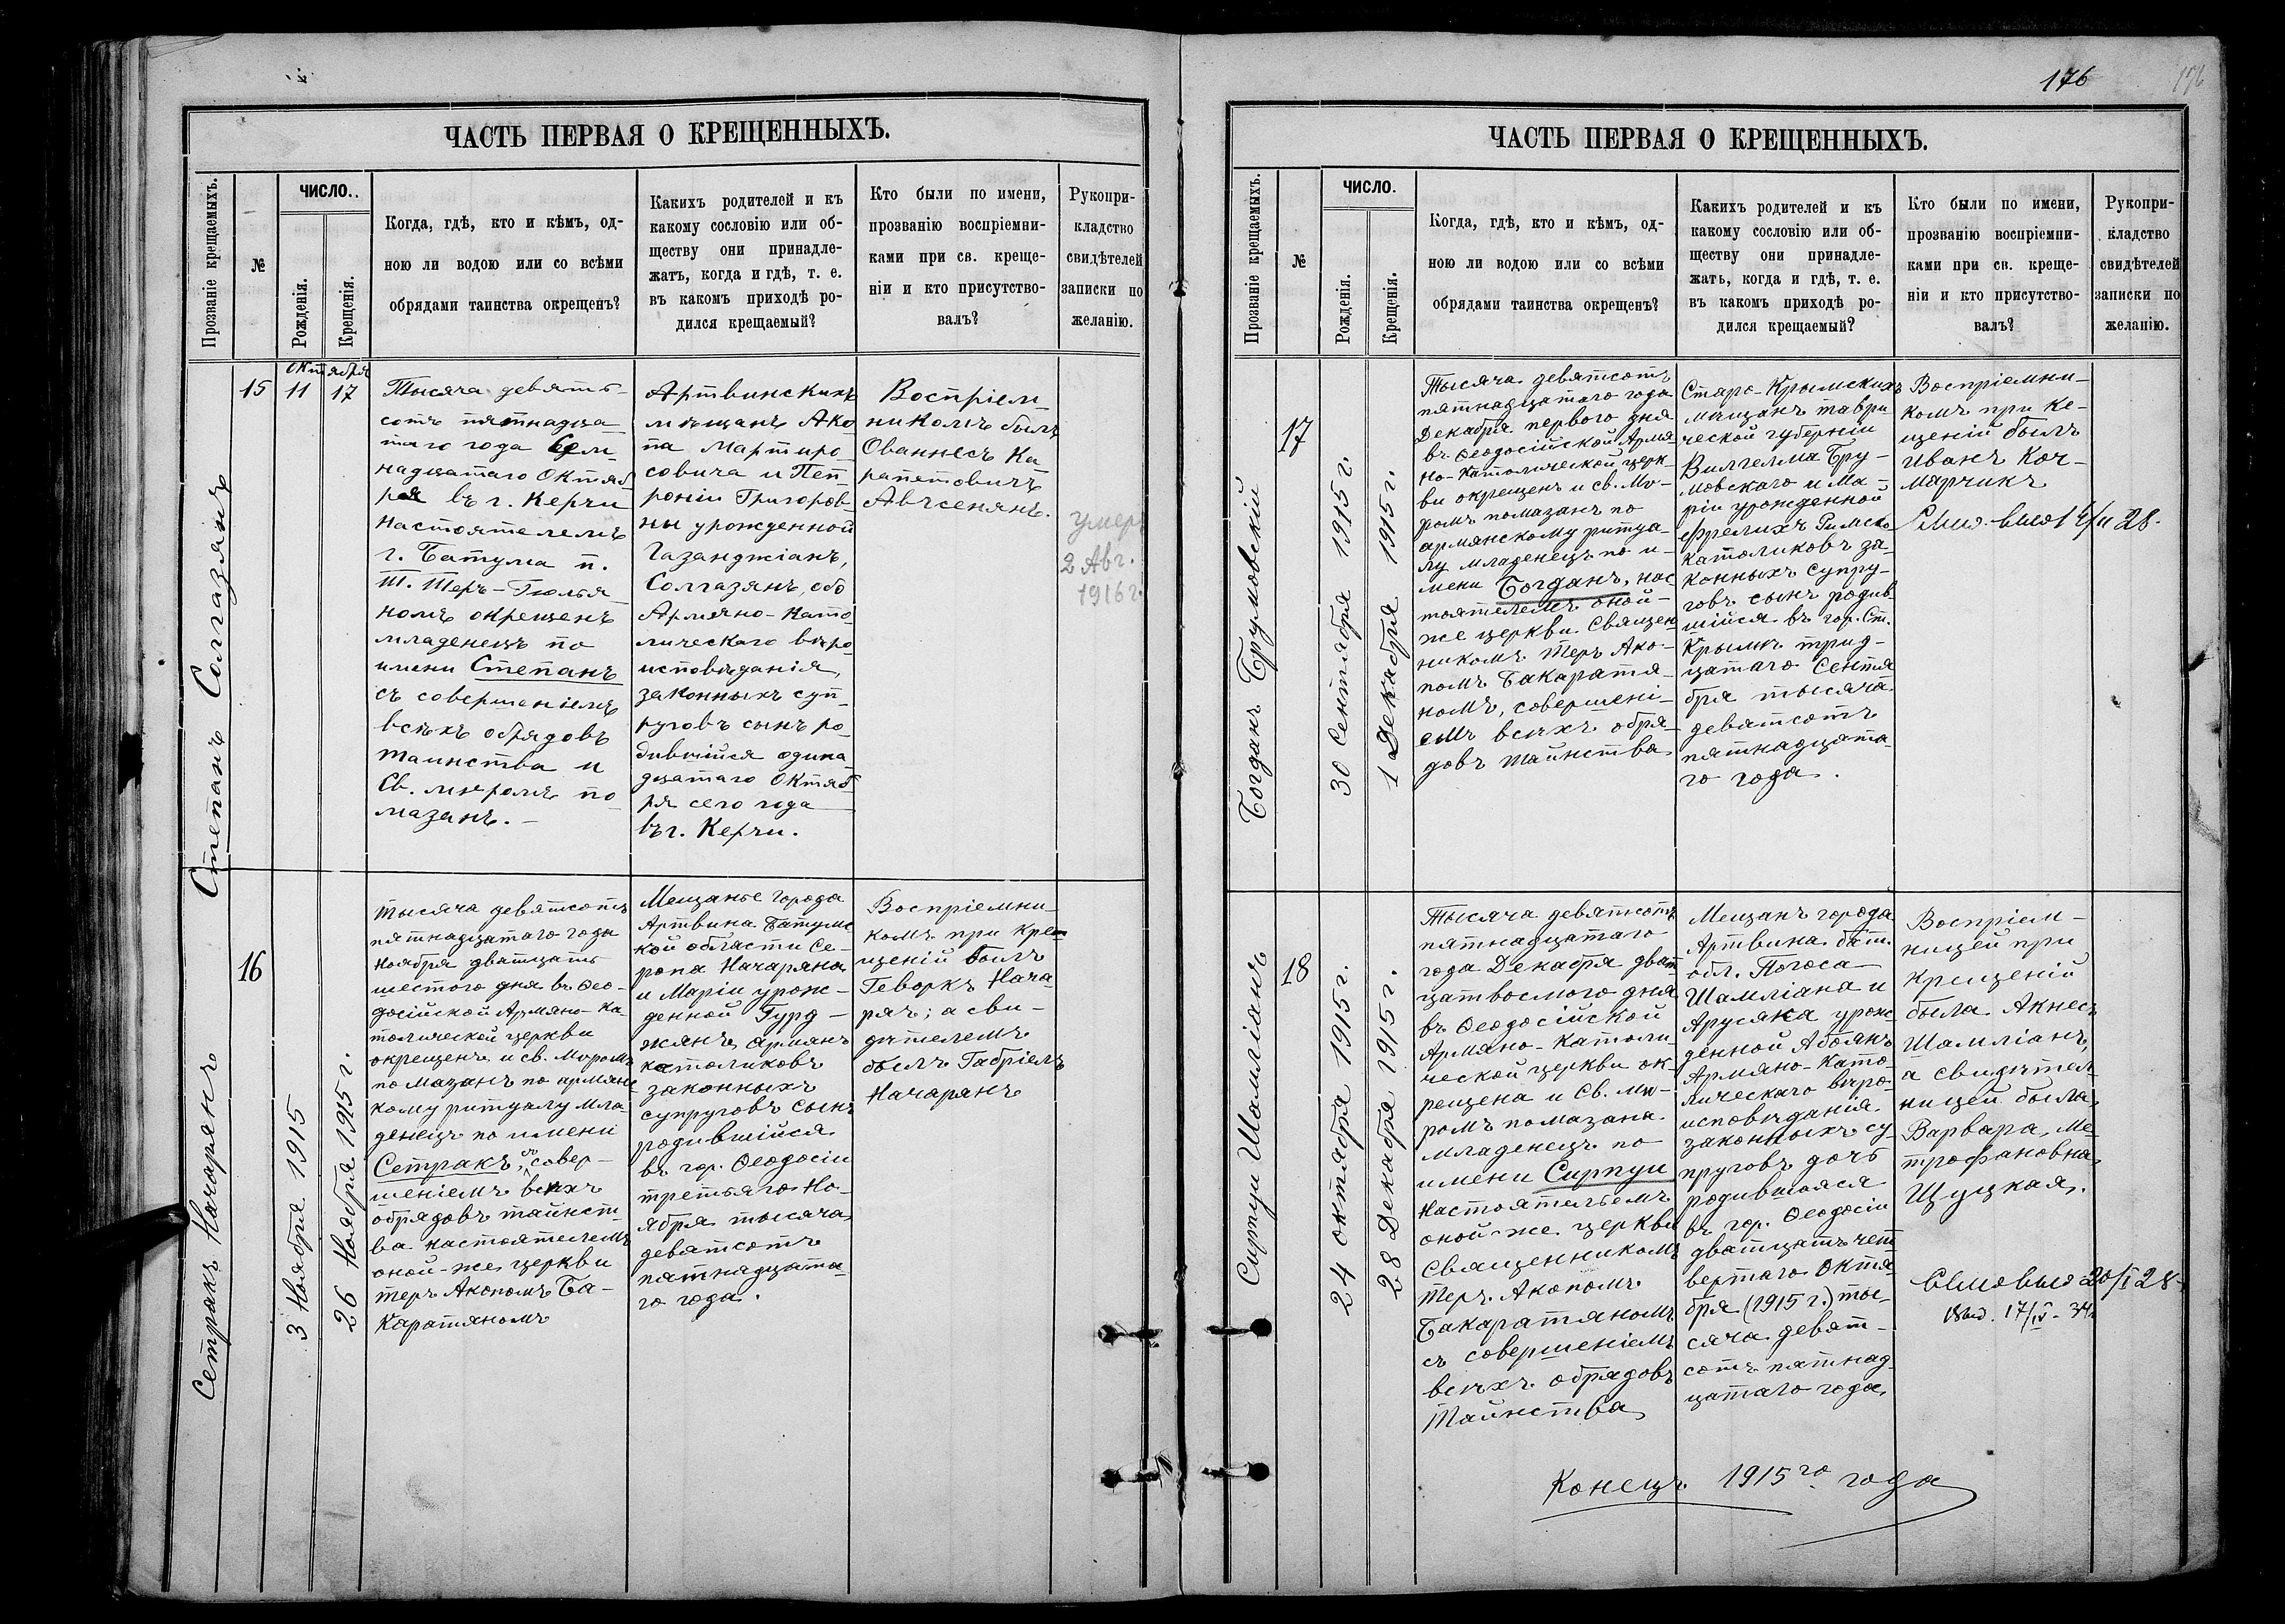 ЧАСТЬ ПЕРВАЯ О КРЕЩЕННЫХЪ.
Прозваніе крещаемыхъ.
№
ЧИСЛО.
Рожденія.
Крещенія.
Когда, гдѣ, кто и кѣмъ, од-
ною ли водою или со всѣми
обрядами таинства окрещенъ?
Какихъ родителей и къ
какому сословію или об-
ществу они принадле-
жатъ, когда и гдѣ, т. е.
въ какомъ приходѣ ро-
дился крещаемый?
Кто были по имени,
прозванію воспріемни-
ками при св. креще-
ніи и кто присутство-
валъ?
Рукопри-
кладство
свидѣтелей
записки по
желанію.
Степанъ Солгазянъ
15
Октября
11
17
Тысяча девять-
сотъ пятнадца
таго года Сем-
надцатаго Октяб
ря въ г. Керчи
настоятелемъ
г. Батума п.
Т. Теръ-Гюлья
номъ окрещенъ
младенецъ по
имени Степанъ
съ совершеніемъ
всѣхъ обрядовъ
таинства и
Св. мѵромъ по
мазанъ. -
Артвинскихъ
мѣщанъ Ако
па Мартиро
совича и Пет
роніи Григоров-
ны урожденной
Газанджіанъ,
Солгазянъ, обо
Армяно-Като
лическаго вѣро
исповѣданія,
законныхъ суп
руговъ сынъ ро
дившійся одина
дцатаго Октяб
ря сего года
въ г. Керчи.
Воспріем-
никомъ былъ
Ованнесъ Ка
рапетовичъ
Авсенянъ.
умер
2 Авг.
1916 г.
Сетракъ Начарянъ
16
3 Ноября 1915
26 Ноября 1915 г.
Тысяча девятсотъ
пятнадцатаго года
Ноября дватцать
шестого дня въ Ѳео-
досійской Армяно-Ка
толической церкви
окрещенъ и св. Мѵромъ
помазанъ по армянс
кому ритуалу мла-
денецъ по имени
Сетракъ, съ совер-
шеніемъ всѣхъ
обрядовъ таинст-
ва настоятелемъ
оной-же церкви
теръ Акопомъ Ба-
каратяномъ
Мещанъе города
Артвина Батумс
кой области Се-
ропа Начаряна
и Маріи урож-
денной Гурд-
жянъ армянъ
католиковъ
законныхъ
супруговъ сынъ
родившійся
въ гор. Ѳеодосіи
третьяго Но-
ября тысяча
девятсотъ
пятнадцата-
го года.
Воспріемни-
комъ при кре-
щеній былъ
Геворкъ Нача-
рянъ; а сви-
дѣтелемъ
былъ Габріелъ
Начарянъ
176
176
ЧАСТЬ ПЕРВАЯ О КРЕЩЕННЫХЪ.
Прозваніе крещаемыхъ.
№
ЧИСЛО.
Рожденія.
Крещенія.
Когда, гдѣ, кто и кѣмъ, од-
ною ли водою или со всѣми
обрядами таинства окрещенъ?
Какихъ родителей и къ
какому сословію или об-
ществу они принадле-
жатъ, когда и гдѣ, т. е.
въ какомъ приходѣ ро-
дился крещаемый?
Кто были по имени,
прозванію воспріемни-
ками при св. креще-
ніи и кто присутство-
валъ?
Рукопри-
кладство
свидѣтелей
записки по
желанію.
Богданъ Брумовскій
17
30 Сентября 1915 г.
1 Декабря 1915 г.
Тысяча девятсотъ
пятнадцатаго года
Декабря первого дня
въ Ѳеодосійской Армя
но-Католической церк-
ви окрещенъ и св. Мѵ-
ромъ помазанъ по
армянскому ритуа-
лу младенецъ по и-
мени Богданъ, нас
тоятелемъ оной-
же церкви Священ
никомъ Теръ Ако-
помъ Бакаратя-
номъ, совершені-
емъ всѣхъ обря-
довъ таинства
Старо-Крымскихъ
мѣщанъ таври
ческой губерніи
Вилгелма Бру-
мовскаго и Ма-
ріи урожденной
Фрелихъ Римско
католиковъ за-
конныхъ супру-
говъ сынъ родив
шійся въ гор. Ст.
Крымѣ трид-
цатаго Сентя
бря тысяча
девятсотъ
пятнадцата-
го года.
Воспріемни-
комъ при ке-
щеній былъ
Иванъ Коч-
марчикъ
28.
Сирпуи Шамліанъ
18
24 октября 1915 г.
28 Декабря 1915 г.
Тысяча девятсотъ
пятнадцатаго
года Декабря дват
цатвосмого дня
въ Ѳеодосійской
Армяно-Католи
ческой церкви ок-
рещена и Св. мѵ-
ромъ помазана
младенецъ по
имени Сирпуи
настоятелъемъ
оной-же церкви
Священникомъ
Теръ Акопомъ
Бакаратяномъ
съ совершеніемъ
всѣхъ обрядовъ
Таинства
Мещанъ города
Артвина бат.
обл. Погоса
Шамліана и
Арусяка урож
денной Абоянъ
Армяно-Като-
лическаго вѣро-
исповѣданія
законныхъ су-
пруговъ дочъ
родившаяся
въ гор. Ѳеодосіи
дватцатъ чет
вертаго Октя-
бря (1915 г.) ты-
сяча девят-
сотъ пятнад-
цатаго года.
Воспріем-
ницей при
крещеній
была Акнесъ
Шамліанъ,
а свидѣтел-
ницей была
Варвара Ме-
трофановна
Щуцкая.
20/I 28
17/IV- 34
Конецъ 1915го года